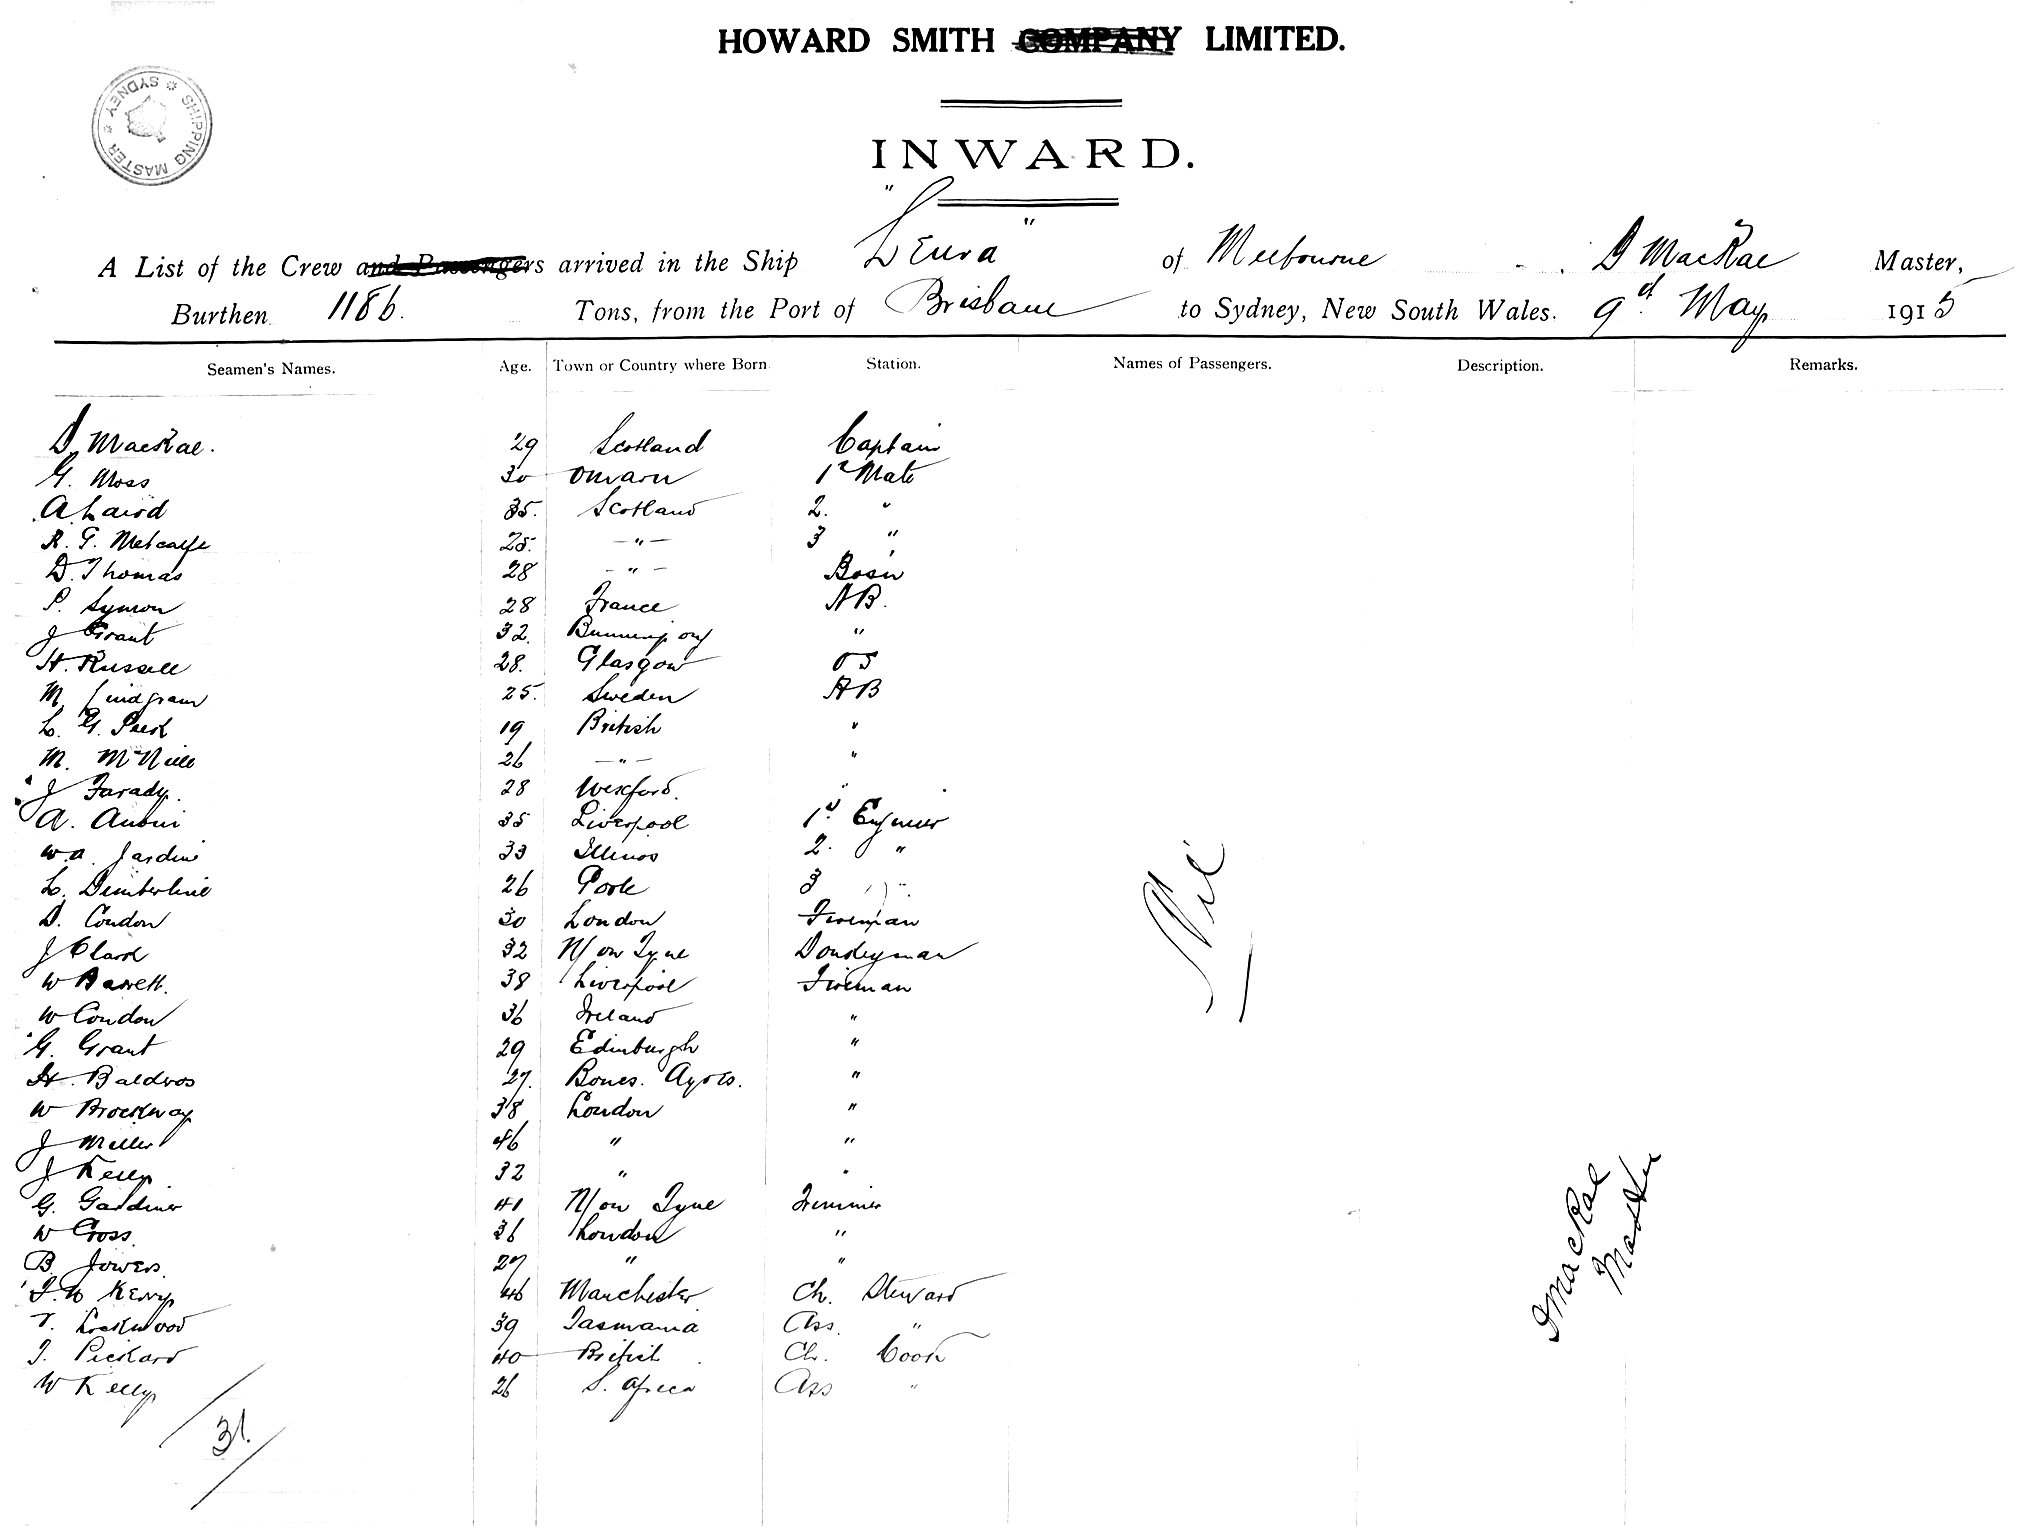 HOWARD SMITH COMPANY LIMITED.
SHIPPING MASTER * SYDNEY *
INWARD.
A List of the Crew and Passengers arrived in the Ship "Leura" of Melbourne D MacRae Master,
Burthen 1186. Tons, from the Port of Brisbane to Sydney, New South Wales. 9th May 1915
Seamen's Names. Age. Town or Country where Born Station. Names of Passengers. Description. Remarks.
D. MacRae. 29 Scotland Captain
G. Moss 30 1st Mate
A Laird 35. Scotland 2. "
R. G. Metcalfe 25. — " — 3 "
D. Thomas 28 — " — Bosn
P. Symon 28 France AB.
J Grant 32. "
H. Russell 28. Glasgow OS
M. Lindgram 25. Sweden AB
L. G. Peek 19 British "
M. McNiell 26 — " — "
J Farady. 28 Wexford. "
A. 35 Liverpool 1st Engineer
W. A. Jardine 33 Illinos 2. "
L. Dimberline 26 Poole 3 "
D. Condon 30 London Fireman
J Clark 32 N/ on Tyne Donkeyman
W Barrett. 38 Liverpool Fireman
W Condon 36 Ireland "
G. Grant 29 Edinburgh "
H. 27. Bones. Ayres. "
W Brockway 38 London "
J Miller 46 " "
J Kelly. 32 " "
G. Gardiner 41 N/ on Tyne Trimmer
W Cross. 36 London "
B. Jowers. 27 " "
J. W Kerry 46 Manchester Ch. Steward
T. Lockwood 39 Tasmania Ass. "
J. Pickard 40 British Ch. Cook
W Kelly 26 S. Africa Ass "
31.
Nil
D MacRae
Master